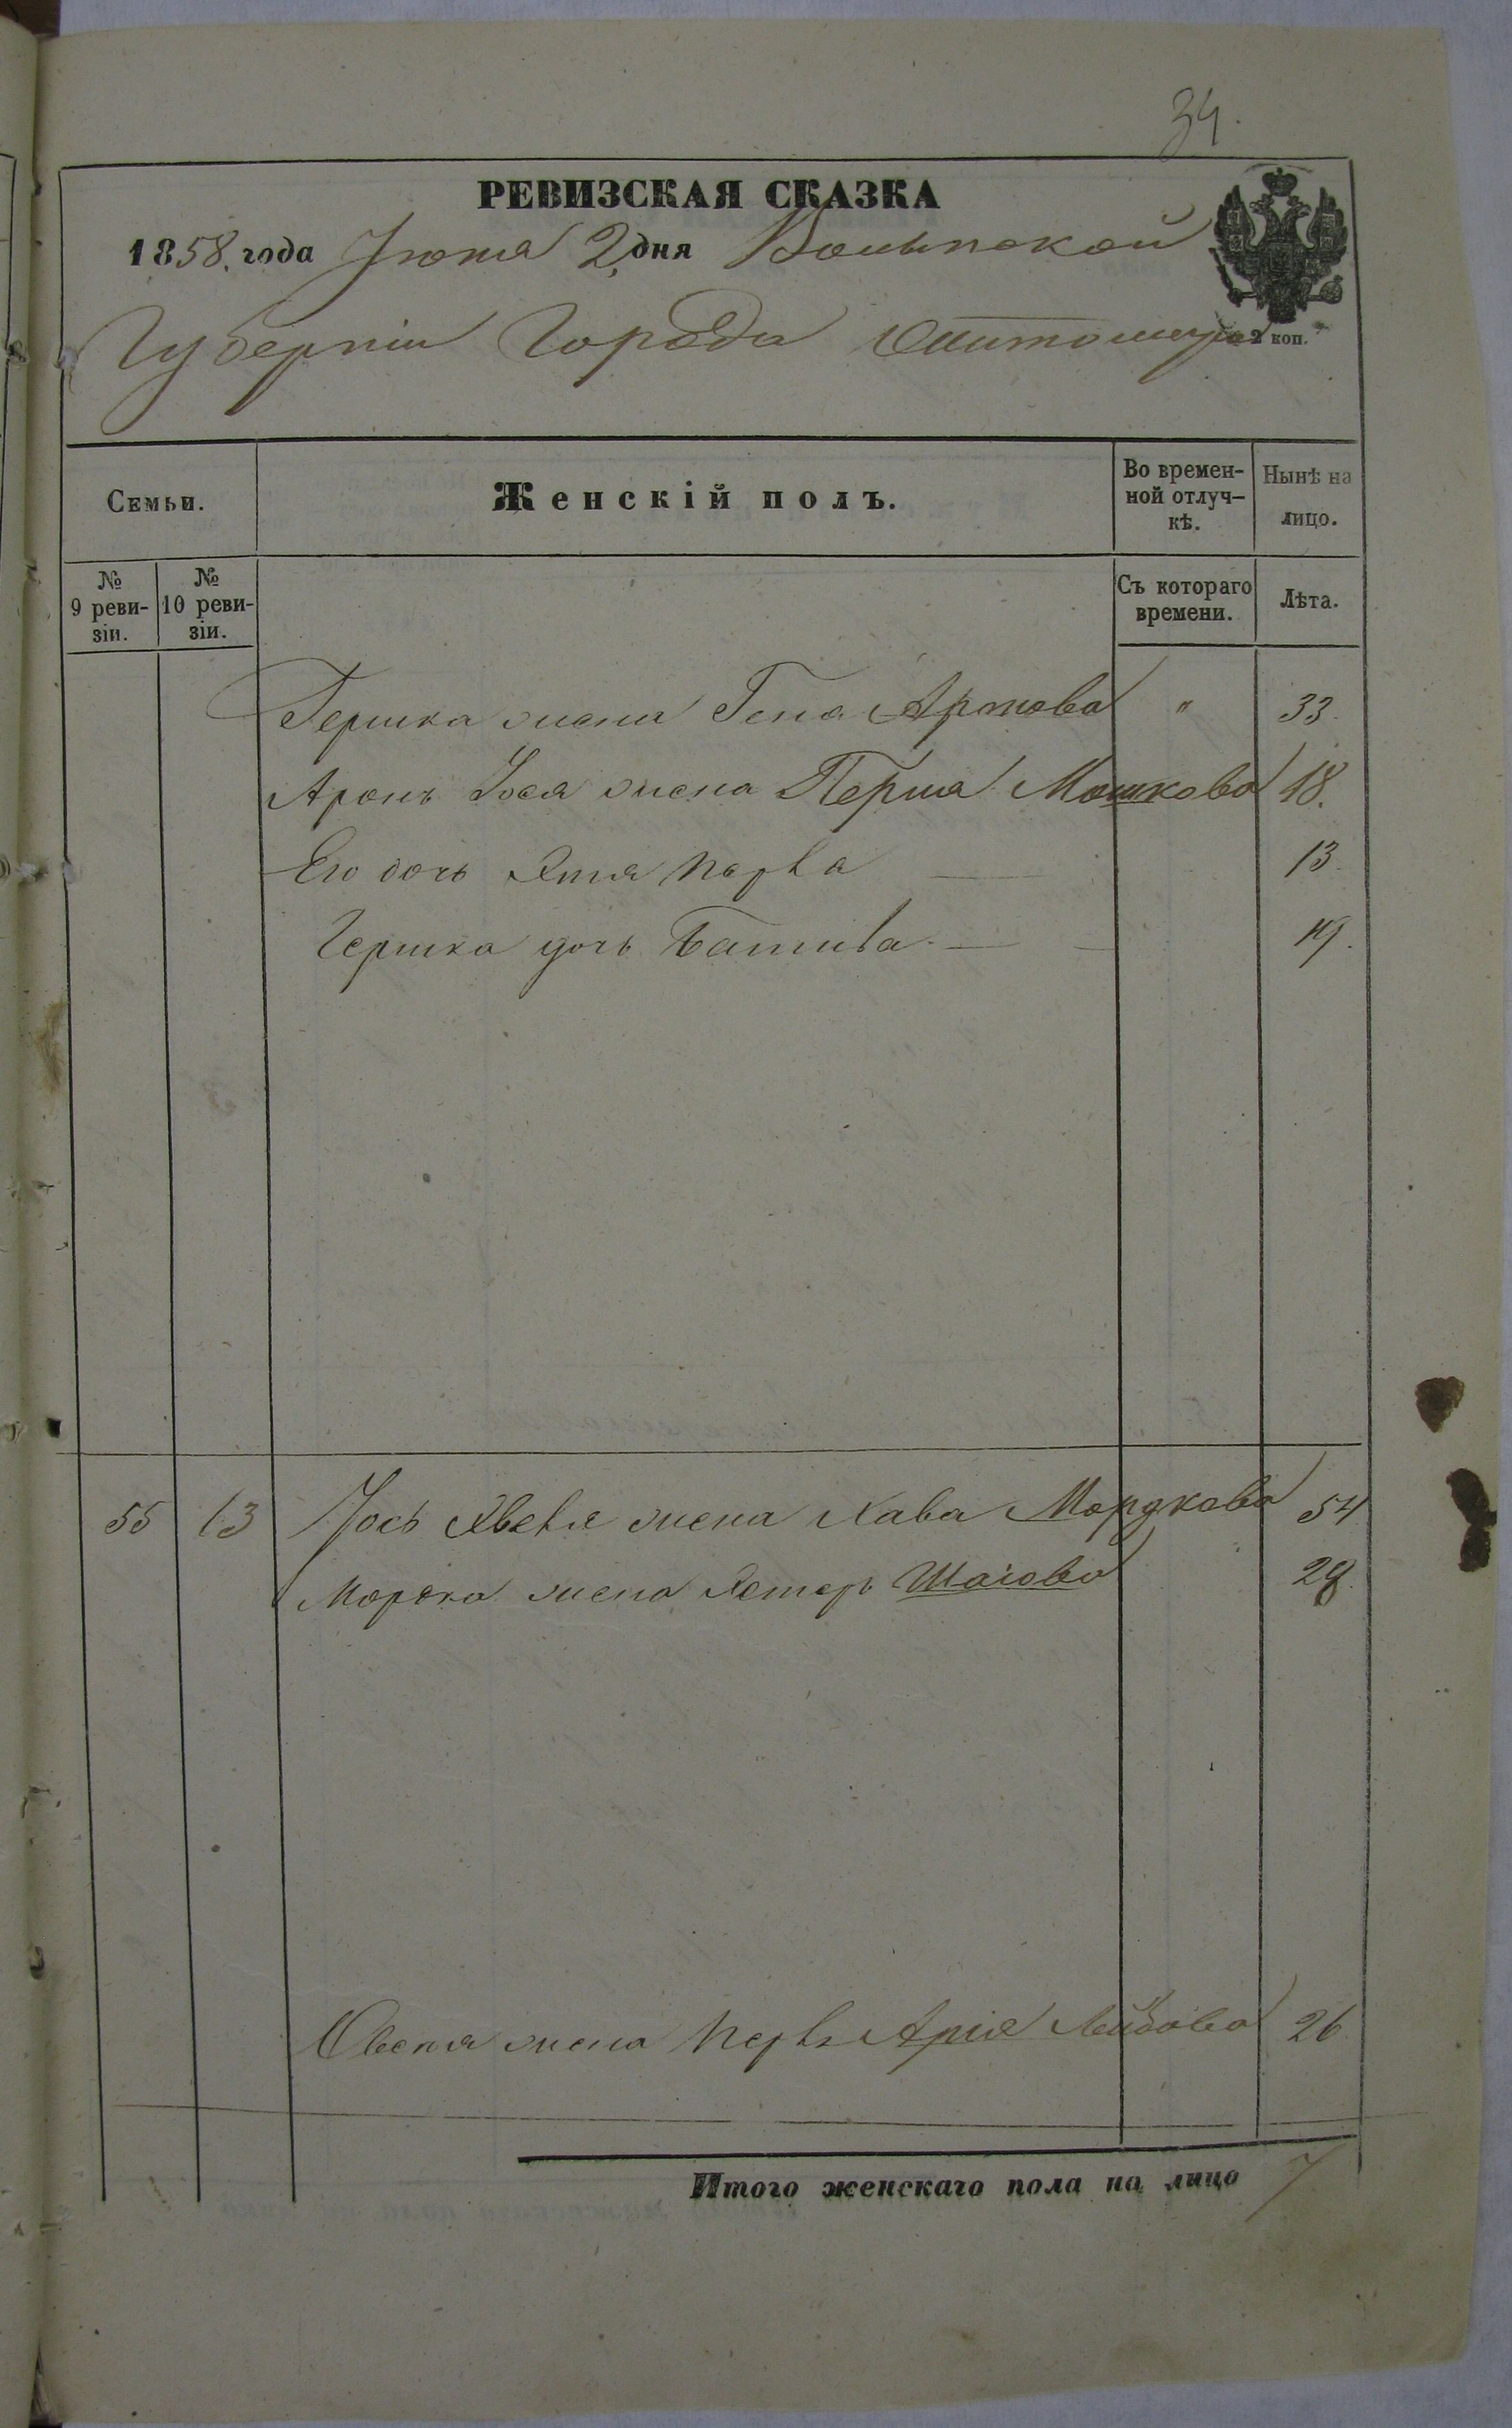 34.
РЕВИЗСКАЯ СКАЗКА
1858. года Іюня 2 дня Волынской
Губерніи Города Житомира
2 коп.
Семьи.
Женскій полъ.
Во времен-
ной отлуч-
кѣ.
Нынѣ на
лицо.
№
9 реви-
зіи.
№
10 реви-
зіи.
Съ котораго
времени.
Лѣта.
Гершка жена Гена Аронова " 33.
Аронъ Іося жена Перла Мошкова 18.
Его дочь 13.
Гершка дочь Батшва 19.
55 13 Іось жена Хава Мордкова 54
Мордка жена Естеръ Шаіова 28.
жена Лейбова 26
Итого женскаго пола на лицо 7